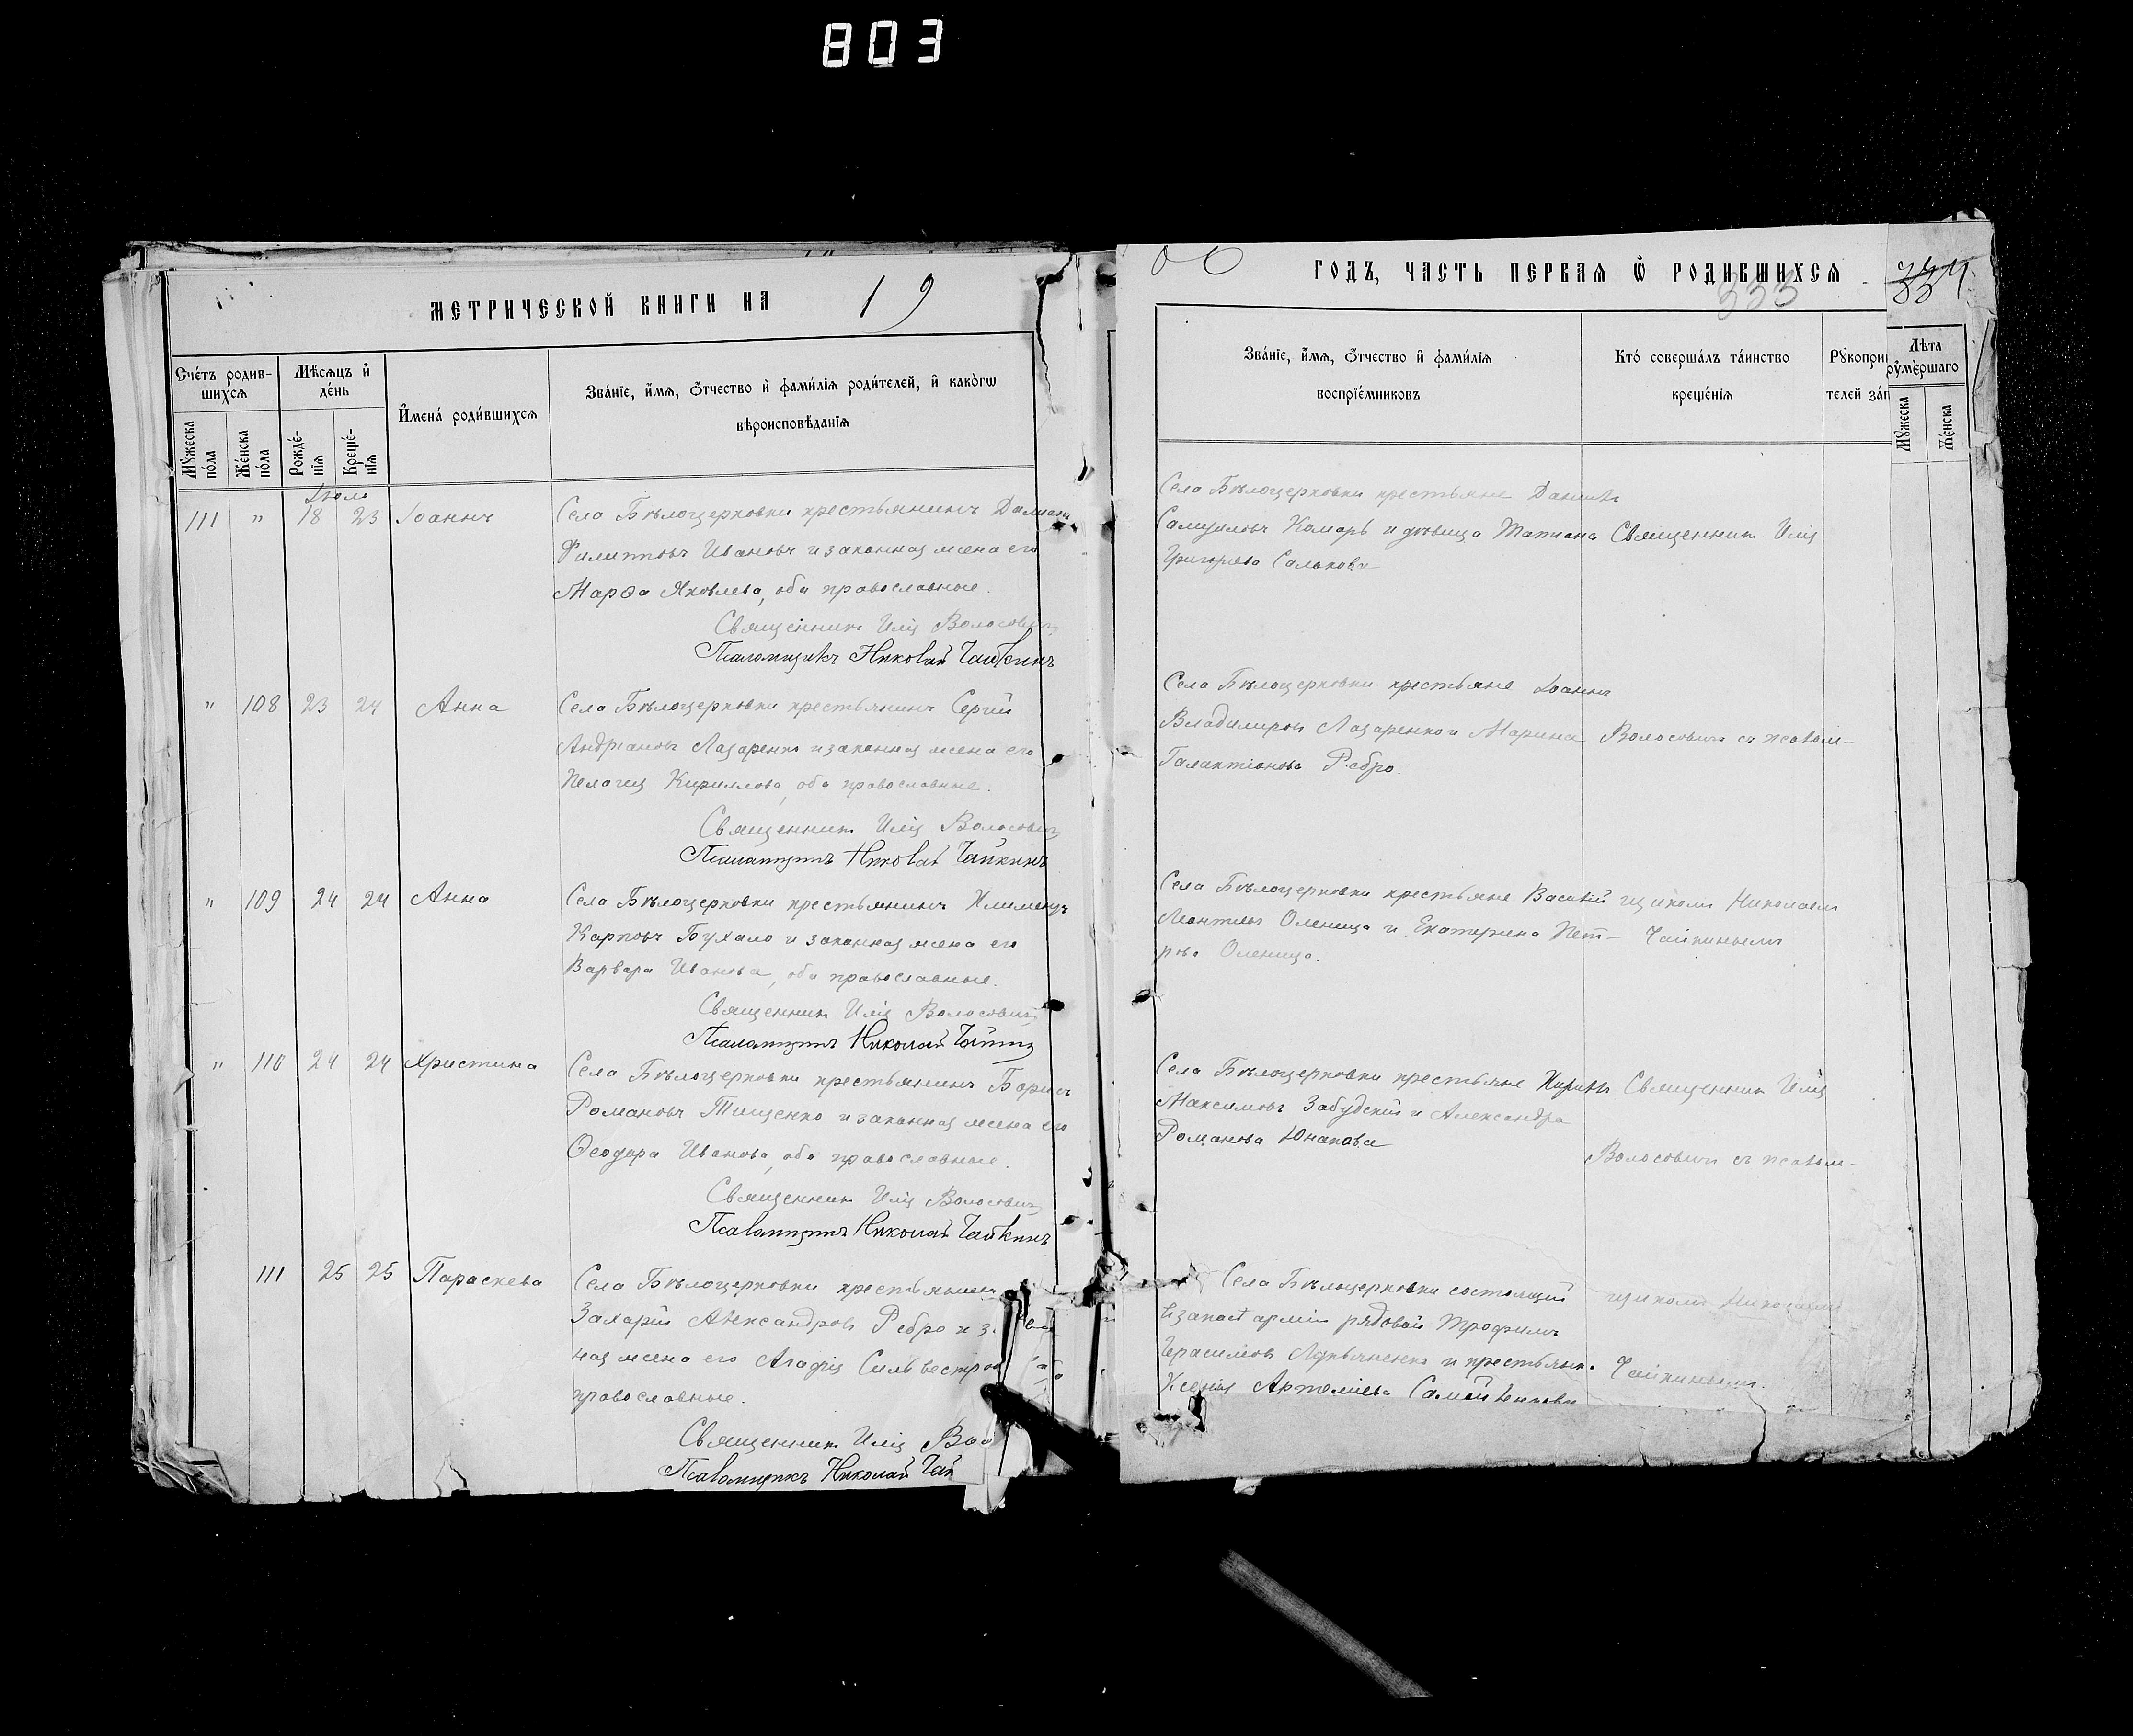 803
МЕТРИЧЕСКОЙ КНИГИ НА 19
Счетъ родив-
шихся
Мѣсяцъ и
день
Имена родившихся
Званіе, имя, отчество и фамилія родителей, и какогω
вѣроисповѣданія
Мужеска
пола
Женска
пола
Рожде-
нія
Креще-
нія
Іюль
111 " 18 23 Іоаннъ
Села Бѣлоцерковки крестьянинъ Даміанъ
Филипповъ Ивановъ и законная жена его
Марѳа Яковлева, оба православные.
Священникъ Илія Волосовичъ
Псаломщикъ Николай Чайкинъ
" 108 23 24 Анна
Села Бѣлоцерковки крестьянинъ Сергій
Андріановъ Лазаренко и законная жена его
Пелагія Кириллова, оба православные.
Священникъ Илія Волосовичъ
Псаломщикъ Николай Чайкинъ
" 109 24 24 Анна
Села Бѣлоцерковки крестьянинъ Климентъ
Карповъ Бухало и законная жена его
Варвара Иванова, оба православные.
Священникъ Илія Волосовичъ
Псаломщикъ Николай Чайкинъ
" 110 24 24 Христина
Села Бѣлоцерковки крестьянинъ Борисъ
Романовъ Тищенко и законная жена его
Ѳеодора Иванова, оба православные.
Священникъ Илія Волосовичъ
Псаломщикъ Николай Чайкинъ
111 25 25 Параскева
Села Бѣлоцерковки крестьянинъ
Захарій Александровъ Ребро и
ная жена его Агафія
православные.
Священникъ Илія Воло
Псаломщикъ Николай Чай
06 ГОДЪ, ЧАСТЬ ПЕРВАЯ Ѡ РОДИВШИХСЯ
333
334
Званіе, имя, отчество и фамилія
воспріемниковъ
Кто совершалъ таинство
крещенія
Рукопри
телей зап
Лѣта
румершаго
Мужеска
Женска
Села Бѣлоцерковки крестьяне Даніилъ
Самуиловъ Комаръ и дѣвица Татіана
Григорьева Салькова
Священникъ Илія
Села Бѣлоцерковки крестьяне Іоаннъ
Владиміровъ Лазаренко и Марина
Галактіонова Ребро.
Волосовичъ съ псалом-
Села Бѣлоцерковки крестьяне Василій
Леонтьевъ Оленица и Екатерина Пет-
рова Оленица.
щикомъ Николаемъ
Чайкинымъ
Села Бѣлоцерковки крестьяне Кириллъ
Максимовъ Забудскій и Александра
Романова Юнакова
Священникъ Илія
Волосовичъ съ псалом-
Села Бѣлоцерковки состоящій
въ запасѣ арміи рядовой Трофимъ
Герасимовъ Лукьяненко и крестьянка
Ксенія Артеміева
щикомъ Николаемъ
Чайкинымъ.